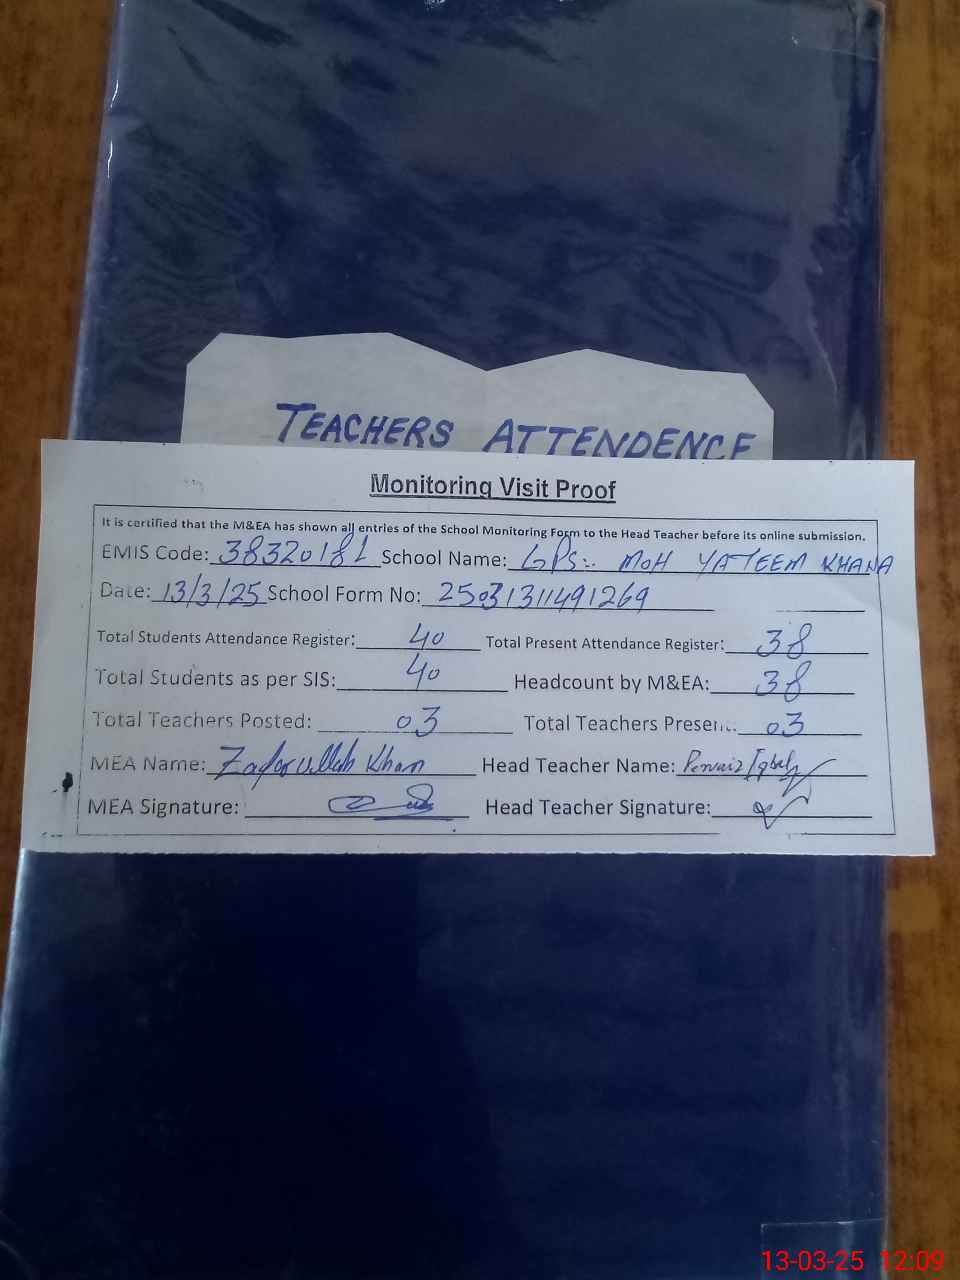 TEACHERS ATTENDENCE
Monitoring Visit Proof
It is certified that the M&EA has shown all entries of the School Monitoring Form to the Head Teacher before its online submission.
EMIS Code: 38320181 School Name: GPS:. MOH YATEEM KHANA
Date: 13/3/25 School Form No: 25031311491269
Total Students Attendance Register: 40 Total Present Attendance Register: 38
Total Students as per SIS: 40 Headcount by M&EA: 38
Total Teachers Posted: 03 Total Teachers Present: 03
MEA Name: Khan Head Teacher Name: Pervaiz Iqbal
MEA Signature: Head Teacher Signature:
13-03-25 12:09